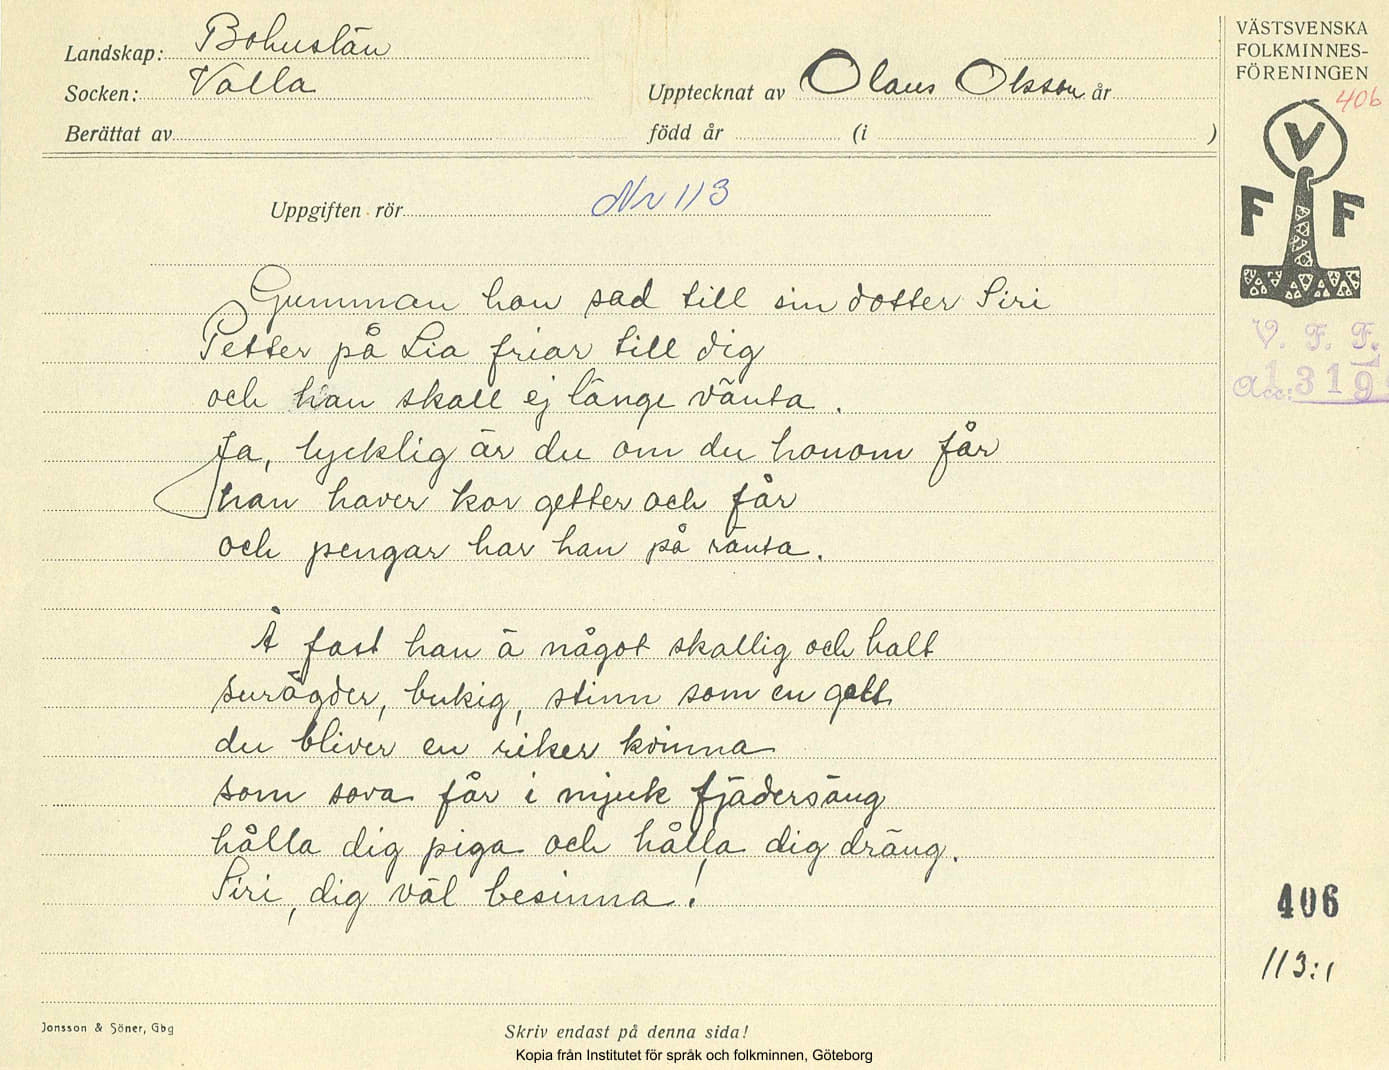 Landskap: Bohuslän
Socken: Valla
Upptecknat av Olaus Olsson år
Berättat av
född år (i )
VÄSTSVENSKA
FOLKMINNES-
FÖRENINGEN
406
V
F F
V. F. F.
Acc: 1319
Uppgiften rör Nr 113
Gumman hon sad till sin dotter Siri
Petter på Lia friar till dig
och han skall ej länge vänta.
Ja, lycklig är du om du honom får
han haver kor getter och får
och pengar har han på ränta.
Å fast han ä något skallig och halt
surögder, bukig, stinn som en galt
du bliver en riker kvinna
som sova får i mjuk fjädersäng
hålla dig piga och hålla dig dräng.
Siri, dig väl besinna!
406
113:1
Jonsson & Söner, Gbg
Skriv endast på denna sida!
Kopia från Institutet för språk och folkminnen, Göteborg